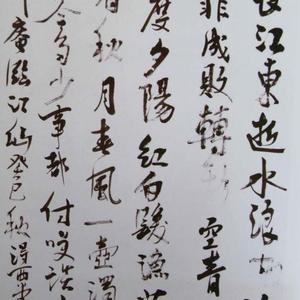 長江東逝水浪花
非成敗轉頭空青
度夕陽紅白髮漁
看秋月春風一壺濁
今多少事都付笑談
升庵臨江仙癸巳秋